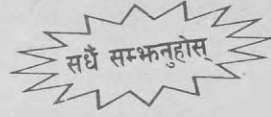 सधैँ सम्झनुहोस्